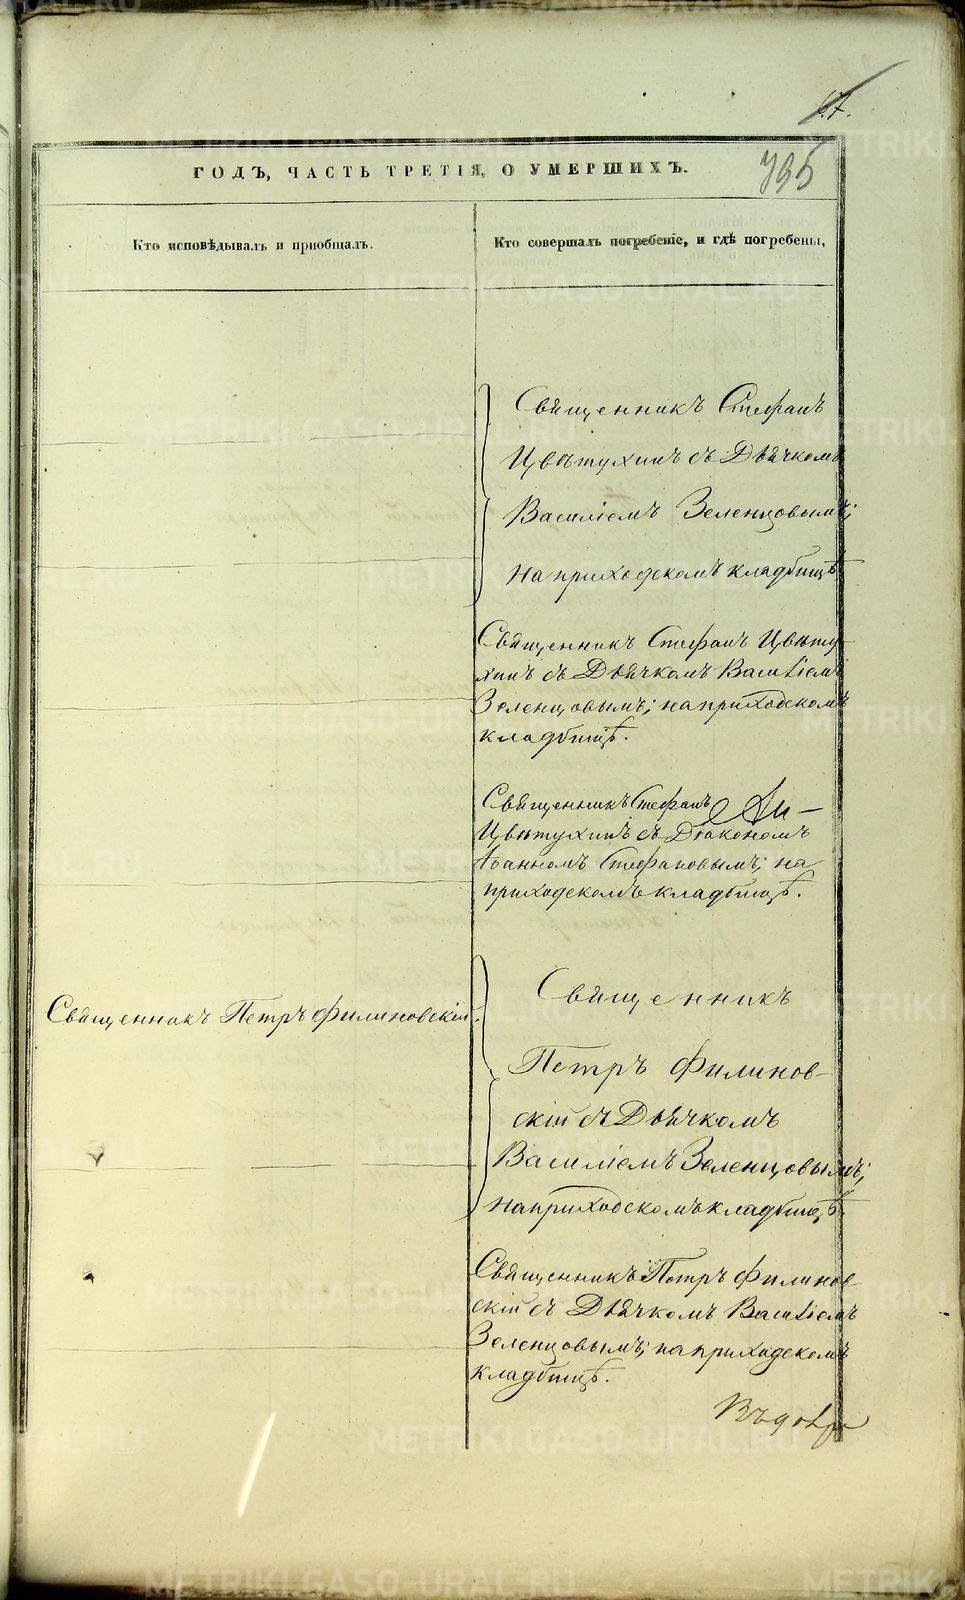 67.
ГОДЪ, ЧАСТЬ ТРЕТІЯ, О УМЕРШИХЪ.
795
Кто исповѣдывалъ и приобщалъ.
Кто совершалъ погребеніе, и гдѣ погребены,
Священникъ Стефанъ
Цвѣтухинъ съ Дьячкомъ
Василіемъ Зеленцовымъ;
на приходскомъ кладбищѣ
Священникъ Стефанъ Цвѣту-
хинъ съ Дьячкомъ Василіемъ
Зеленцовымъ; на приходскомъ
кладбищѣ.
Священникъ Стефанъ
Цвѣтухинъ съ Діакономъ
Іоанномъ Стефановымъ; на
приходскомъ кладбищѣ.
Священникъ Петръ Филиновскій.
Священникъ
Петръ Филинов-
скій съ Дьячкомъ
Василіемъ Зеленцовымъ;
на приходскомъ кладбищѣ
Священникъ Петръ Филинов-
скій съ Дьячкомъ Василіемъ
Зеленцовымъ; на приходскомъ
кладбищѣ.
METRIKI.GASO-URAL.RU